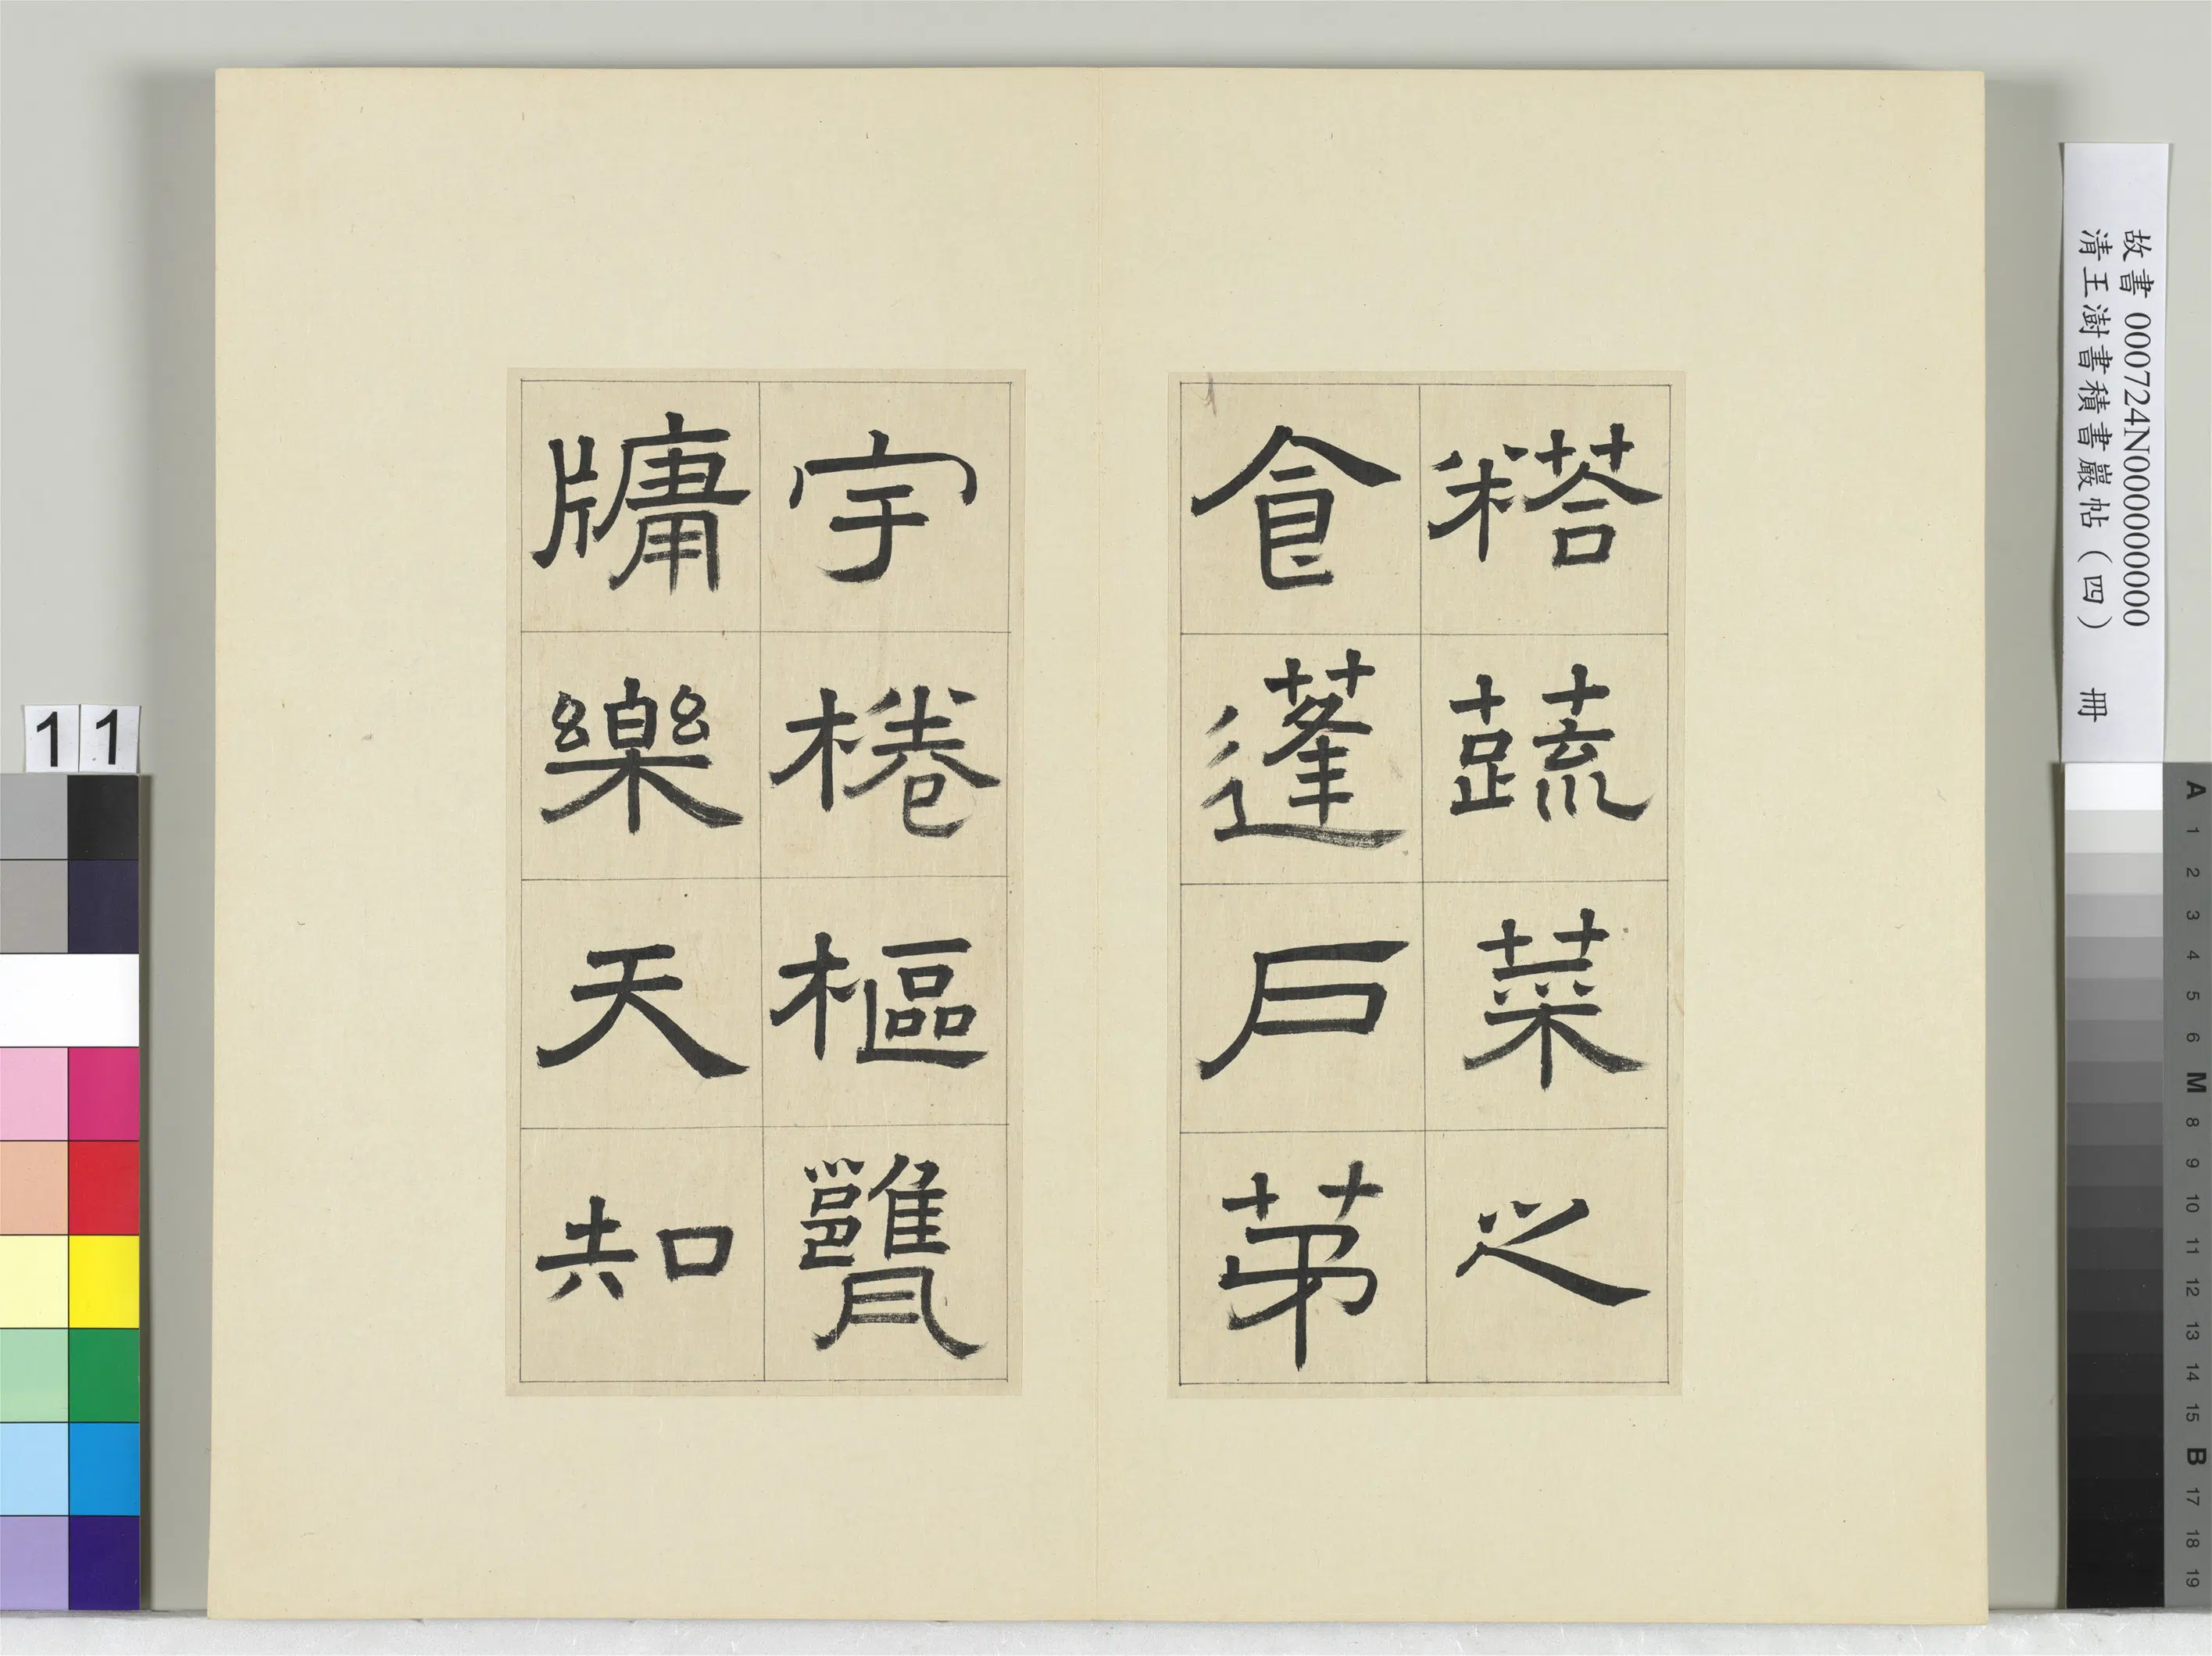 蔬菜之
食蓬戶茅
宇棬樞甕
牖樂天知
故書 000724N000000000
清王澍書積書巖帖（四） 冊
11
A 1 2 3 4 5 6 M 8 9 10 11 12 13 14 15 B 17 18 19